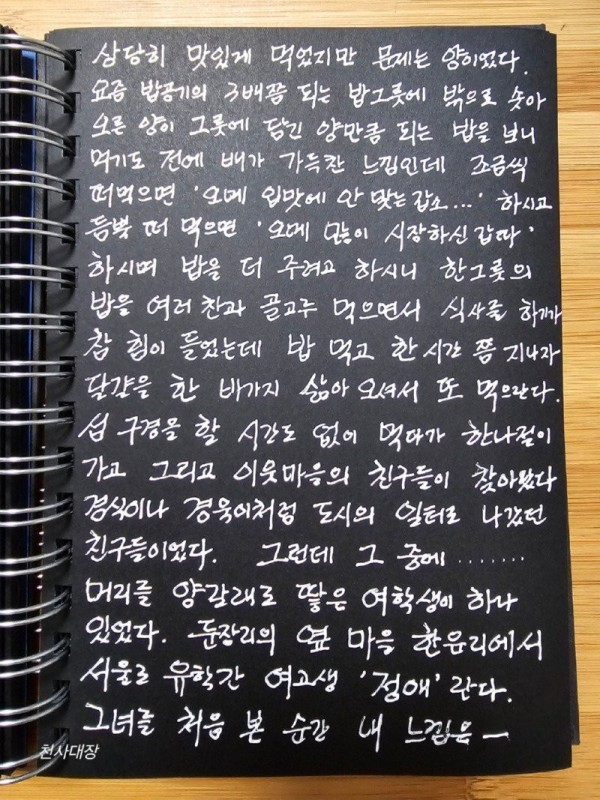 상당히 맛있게 먹었지만 문제는 양이었다.
요즘 밥공기의 3배쯤 되는 밥그릇에 밖으로 솟아
오른 양이 그릇에 담긴 양만큼 되는 밥을 보니
먹기도 전에 배가 가득찬 느낌인데 조금씩
떠먹으면 '오메 입맛에 안 맞는갑소...' 하시고
듬뿍 떠 먹으면 '오메 많이 시장하신갑따'
하시며 밥을 더 주려고 하시니 한그릇의
밥을 여러 찬과 골고루 먹으면서 식사를 하기가
참 힘이 들었는데 밥 먹고 한시간 쯤 지나자
달걀을 한 바가지 삶아 오셔서 또 먹으란다.
섬 구경을 할 시간도 없이 먹다가 한나절이
가고 그리고 이웃마을의 친구들이 찾아왔다
경식이나 경욱이처럼 도시의 일터로 나갔던
친구들이었다. 그런데 그 중에 .......
머리를 양갈래로 땋은 여학생이 하나
있었다. 둔장리의 옆 마을 한운리에서
서울로 유학간 여고생 '정애' 란다.
그녀를 처음 본 순간 내 느낌은 ―
천사대장